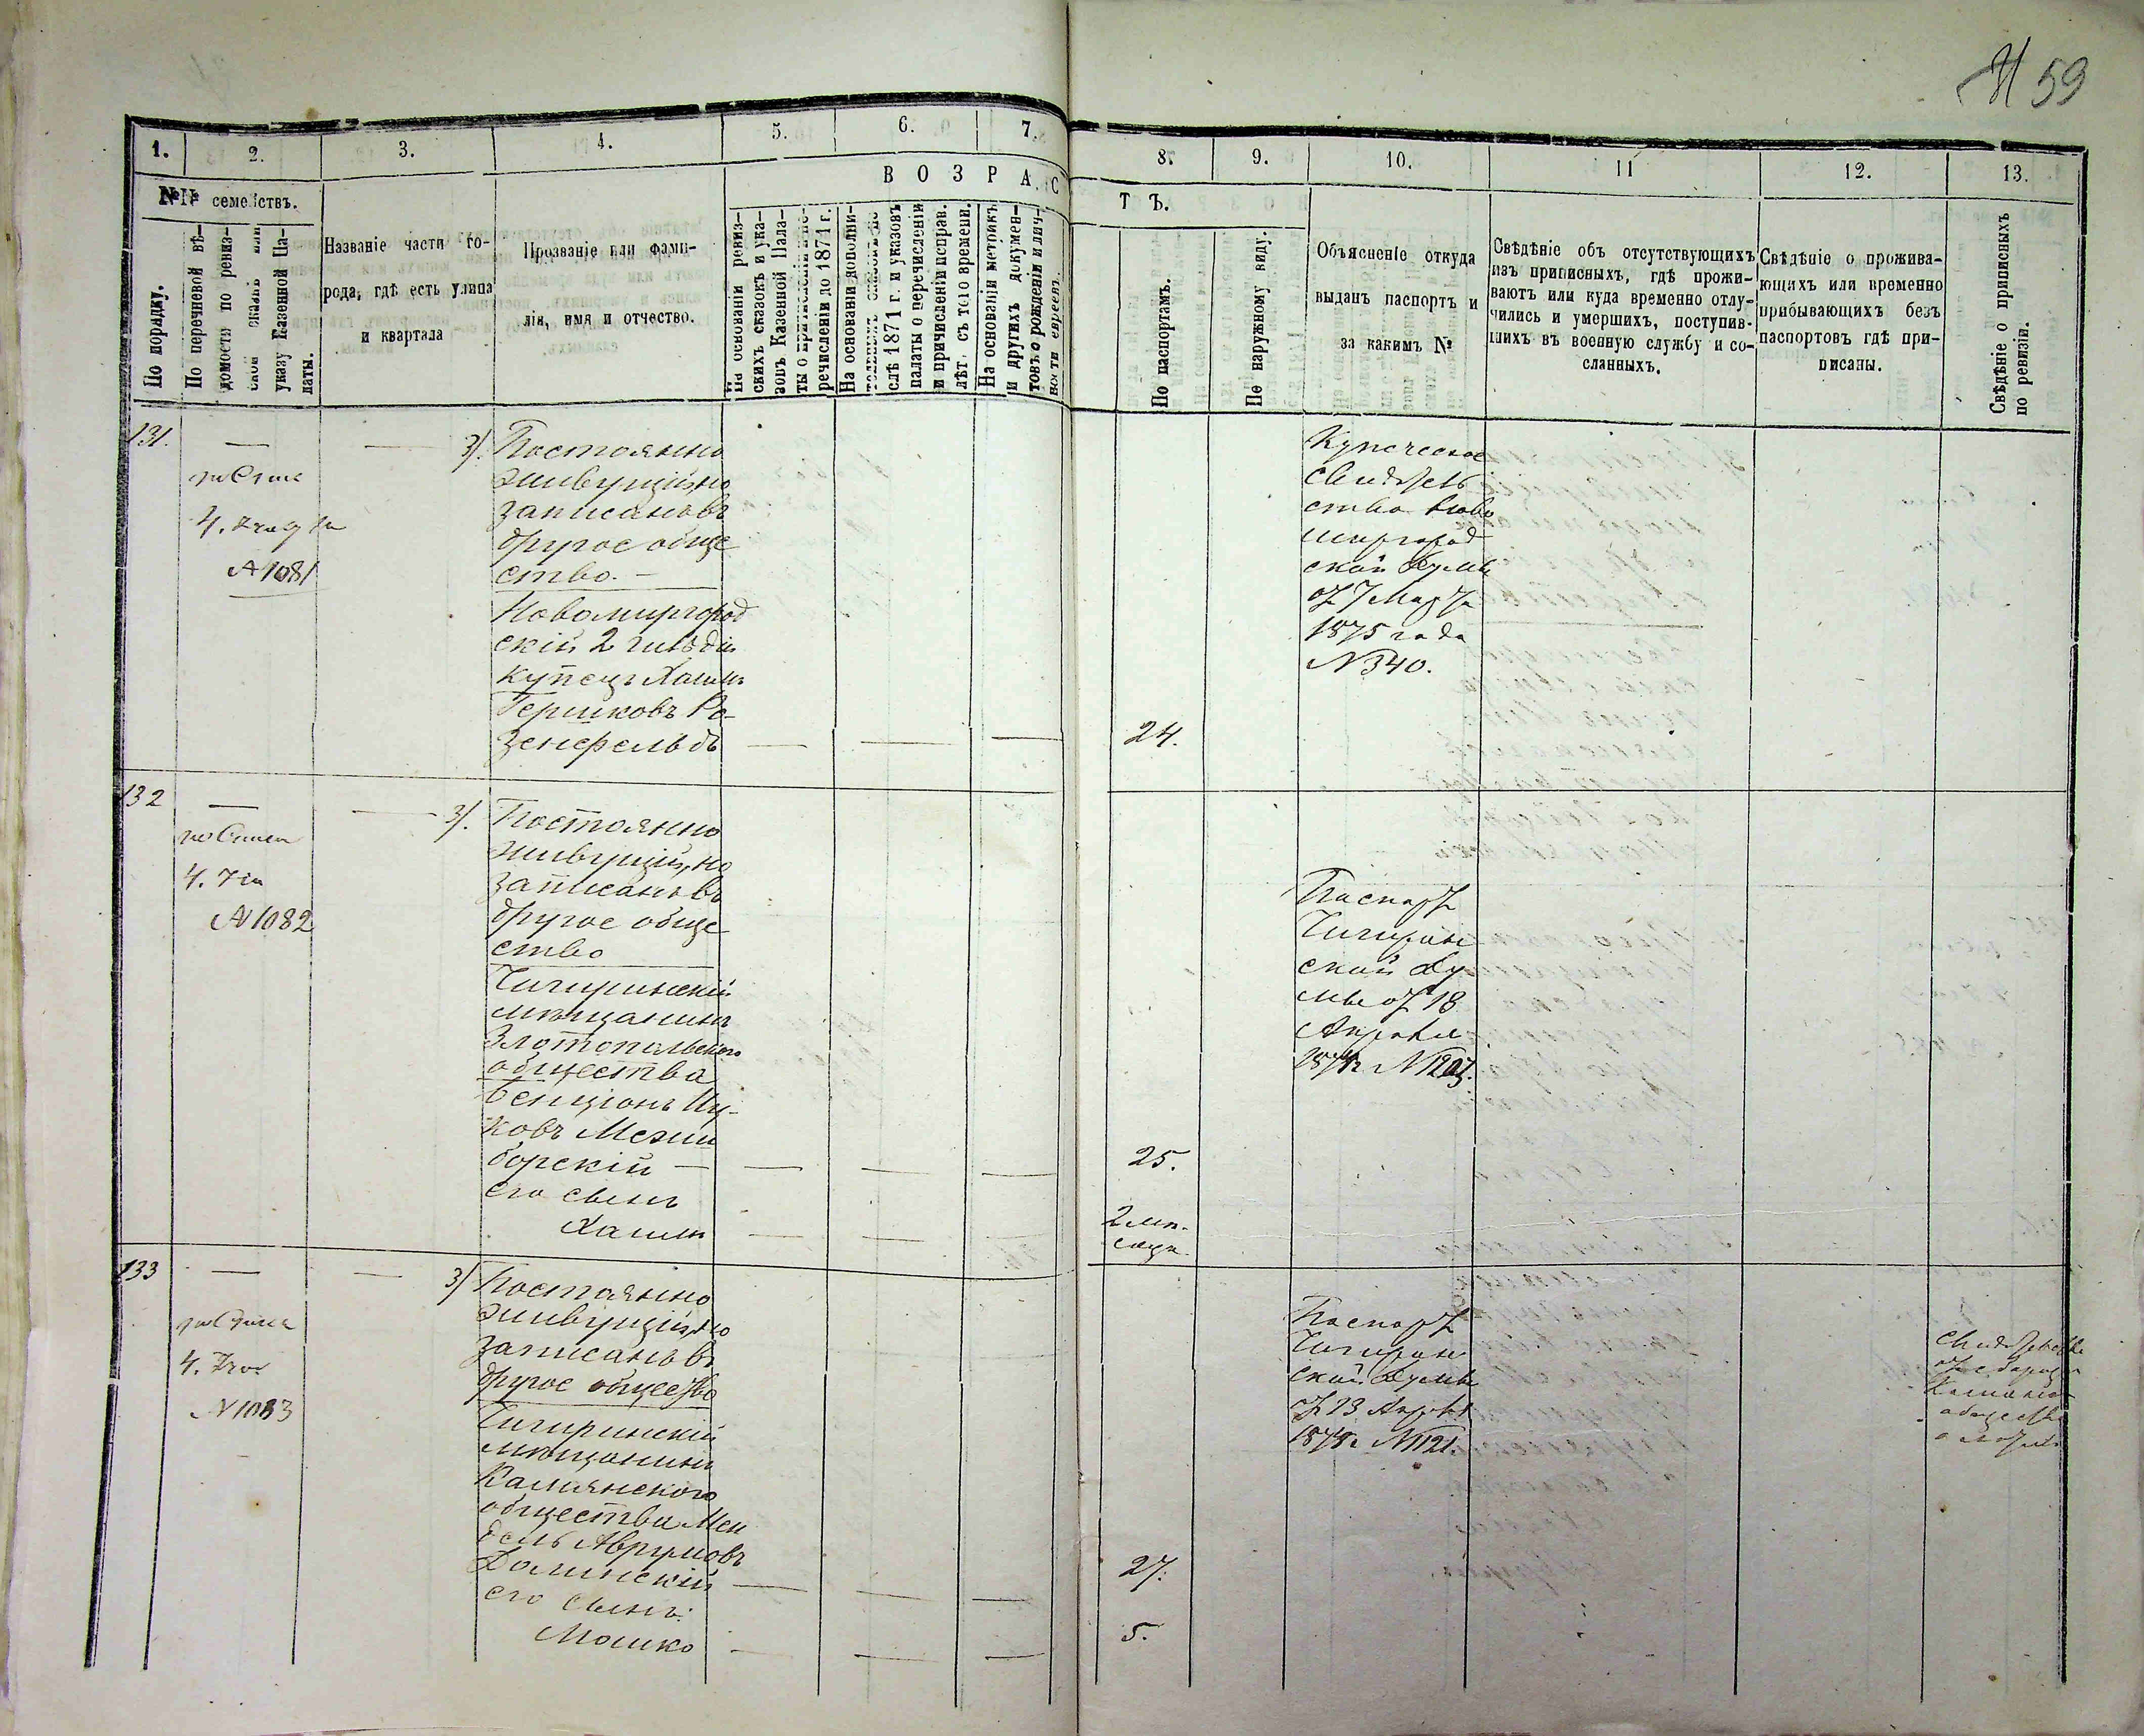 59
1.
2.
3.
4.
5.
6.
7.
8.
9.
10.
11
12.
13.
№№ семействъ.
ВОЗРАС
ТЪ.
По порядку.
По перечневой вѣ-
домости по ревиз-
ской сказкѣ или
указу Казенной Па-
латы.
Названіе части го-
рода, гдѣ есть улица
и квартала
Прозваніе или фами-
лія, имя и отчество.
На основаніи ревиз-
скихъ сказокъ и ука-
зовъ Казенной Пала-
ты о причисленіи и пе-
речисленіи до 1871 г.
На основаніи дополни-
слѣ 1871 г. и указовъ
палаты о перечисленіи
и причисленіи исправ.
лѣт. съ того времени.
На основаніи метрикъ
и другихъ докумен-
товъ о рожденіи и лич-
ности евреевъ.
По паспортамъ.
По наружному виду.
Объясненіе откуда
выданъ паспортъ и
за какимъ №
Свѣдѣніе объ отсутствующихъ
изъ приписныхъ, гдѣ прожи-
ваютъ или куда временно отлу-
чились и умершихъ, поступив-
шихъ въ военную службу и со-
сланныхъ.
Свѣдѣніе о прожива-
ющихъ или временно
прибывающихъ безъ
паспортовъ гдѣ при-
писаны.
Свѣдѣніе о приписныхъ
по ревизіи.
131.
№ 1081
3).
Постоянно
живущій, но
записанъ въ
другое обще
ство. —
Новомиргород
скій 2 гильдіи
купецъ Хаимъ
Гершковъ Ро-
зенфельдъ
24.
Купеческое
свидѣтель
ство Ново
миргород
ской Думы
от 7 Марта
1875 года
№ 340.
132
№ 1082
3).
Постоянно
живущій, но
записанъ въ
другое обще
ство
Чигиринскій
мѣщанинъ
Златопольского
общества
Бенціонъ Иц-
ковъ Межи
борскій —
его сынъ
Хаимъ
25.
2 мѣ-
сяца
Паспортъ
Чигирин
ской Ду
мы от 18
Апреля
133
№ 1083
3)
Постоянно
живущій, но
записанъ въ
другое общество
Чигиринскій
мѣщанинъ
Камянского
общества Мен
дель Аврумовъ
Долинскій
его сынъ:
Мошко
27.
5.
Паспортъ
Чигирин
ской Думы
от 23 Апреля
№ 1121.